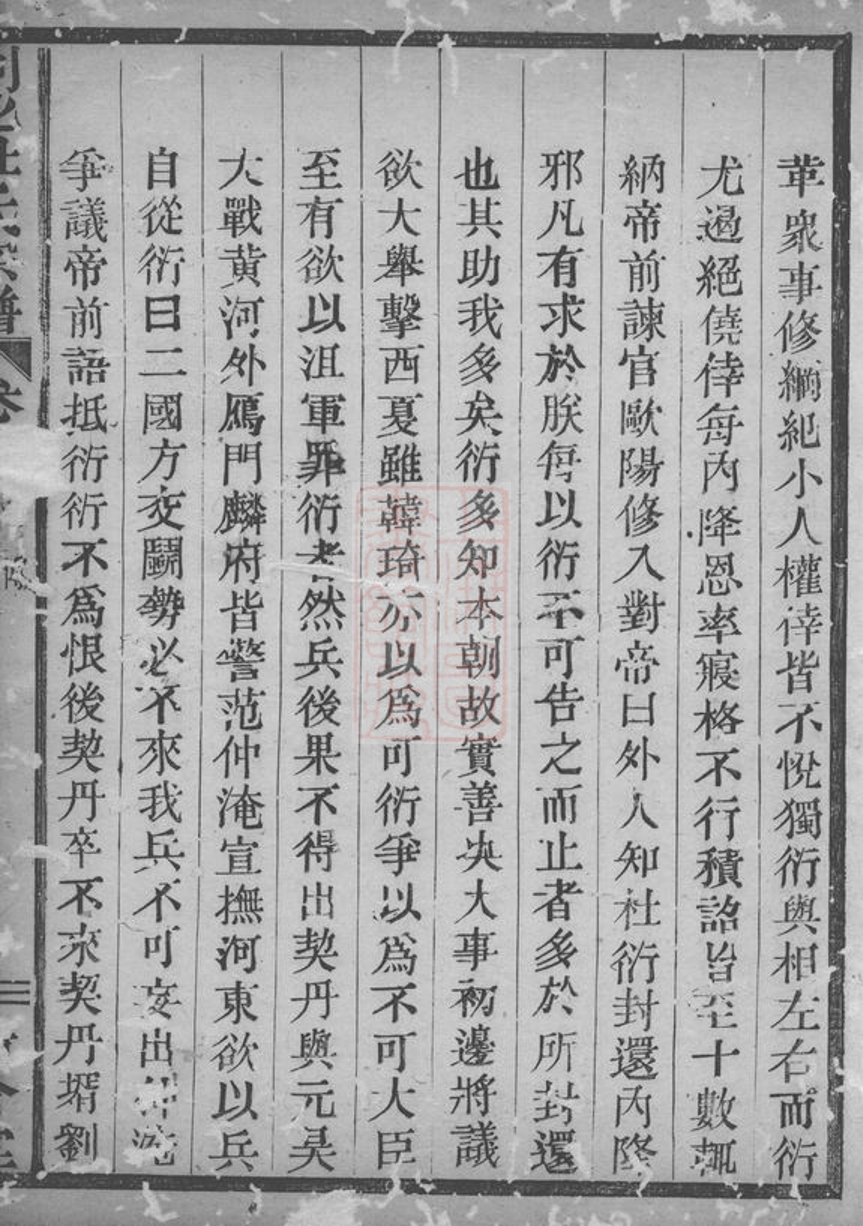 革衆事修綱紀小人權倖皆不悅獨衍與相左右而衍
尤過絕僥倖每內降恩率寢格不行積詔旨至十數輒
納帝前諫官歐陽修入對帝曰外人知杜衍封還內降
邪凡有求於朕每以衍不可告之而止者多於所封還
也其助我多矣衍多知本朝故實善決大事初邊將議
欲大舉擊西夏雖韓琦亦以爲可衍爭以爲不可大臣
至有欲以沮軍罪衍者然兵後果不得出契丹與元昊
大戰黄河外鴈門麟府皆警范仲淹宣撫河東欲以兵
自從衍曰二國方交鬬勢必不來我兵不可妄出仲淹
爭議帝前語抵衍衍不爲恨後契丹卒不來契丹壻劉
杜氏宗譜 卷